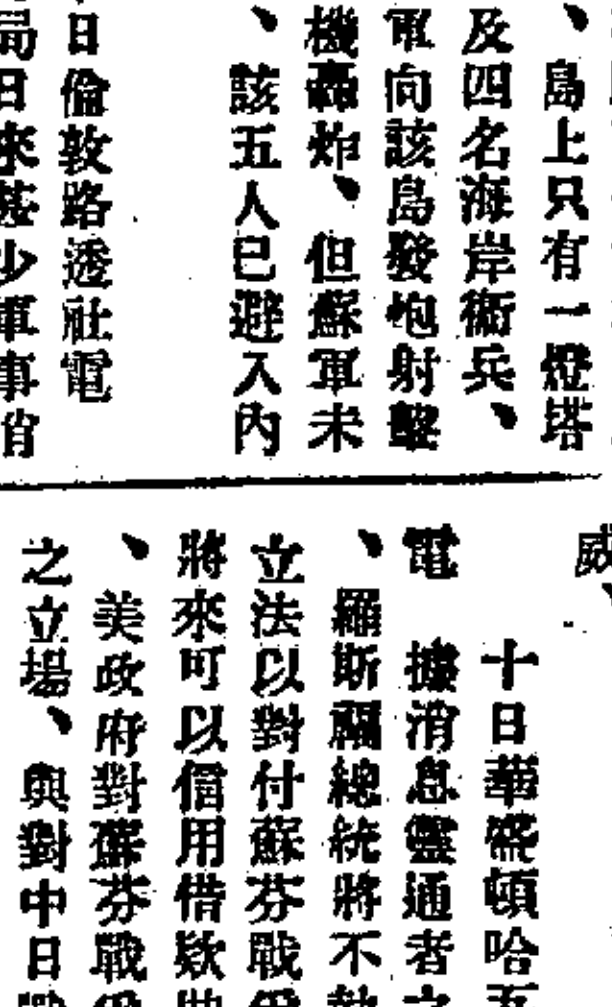 、島上只有一燈塔
及四名海岸衞兵、
軍向該島發炮射擊
機轟炸、但蘇軍未
、該五人已避入內
日倫敦路透社電
局日來甚少軍事消
威、
十日華盛頓哈瓦
電 據消息靈通者之
、羅斯福總統將不
立法以對付蘇芬戰
將來可以信用借欵
、美政府對蘇芬戰
之立場、與對中日